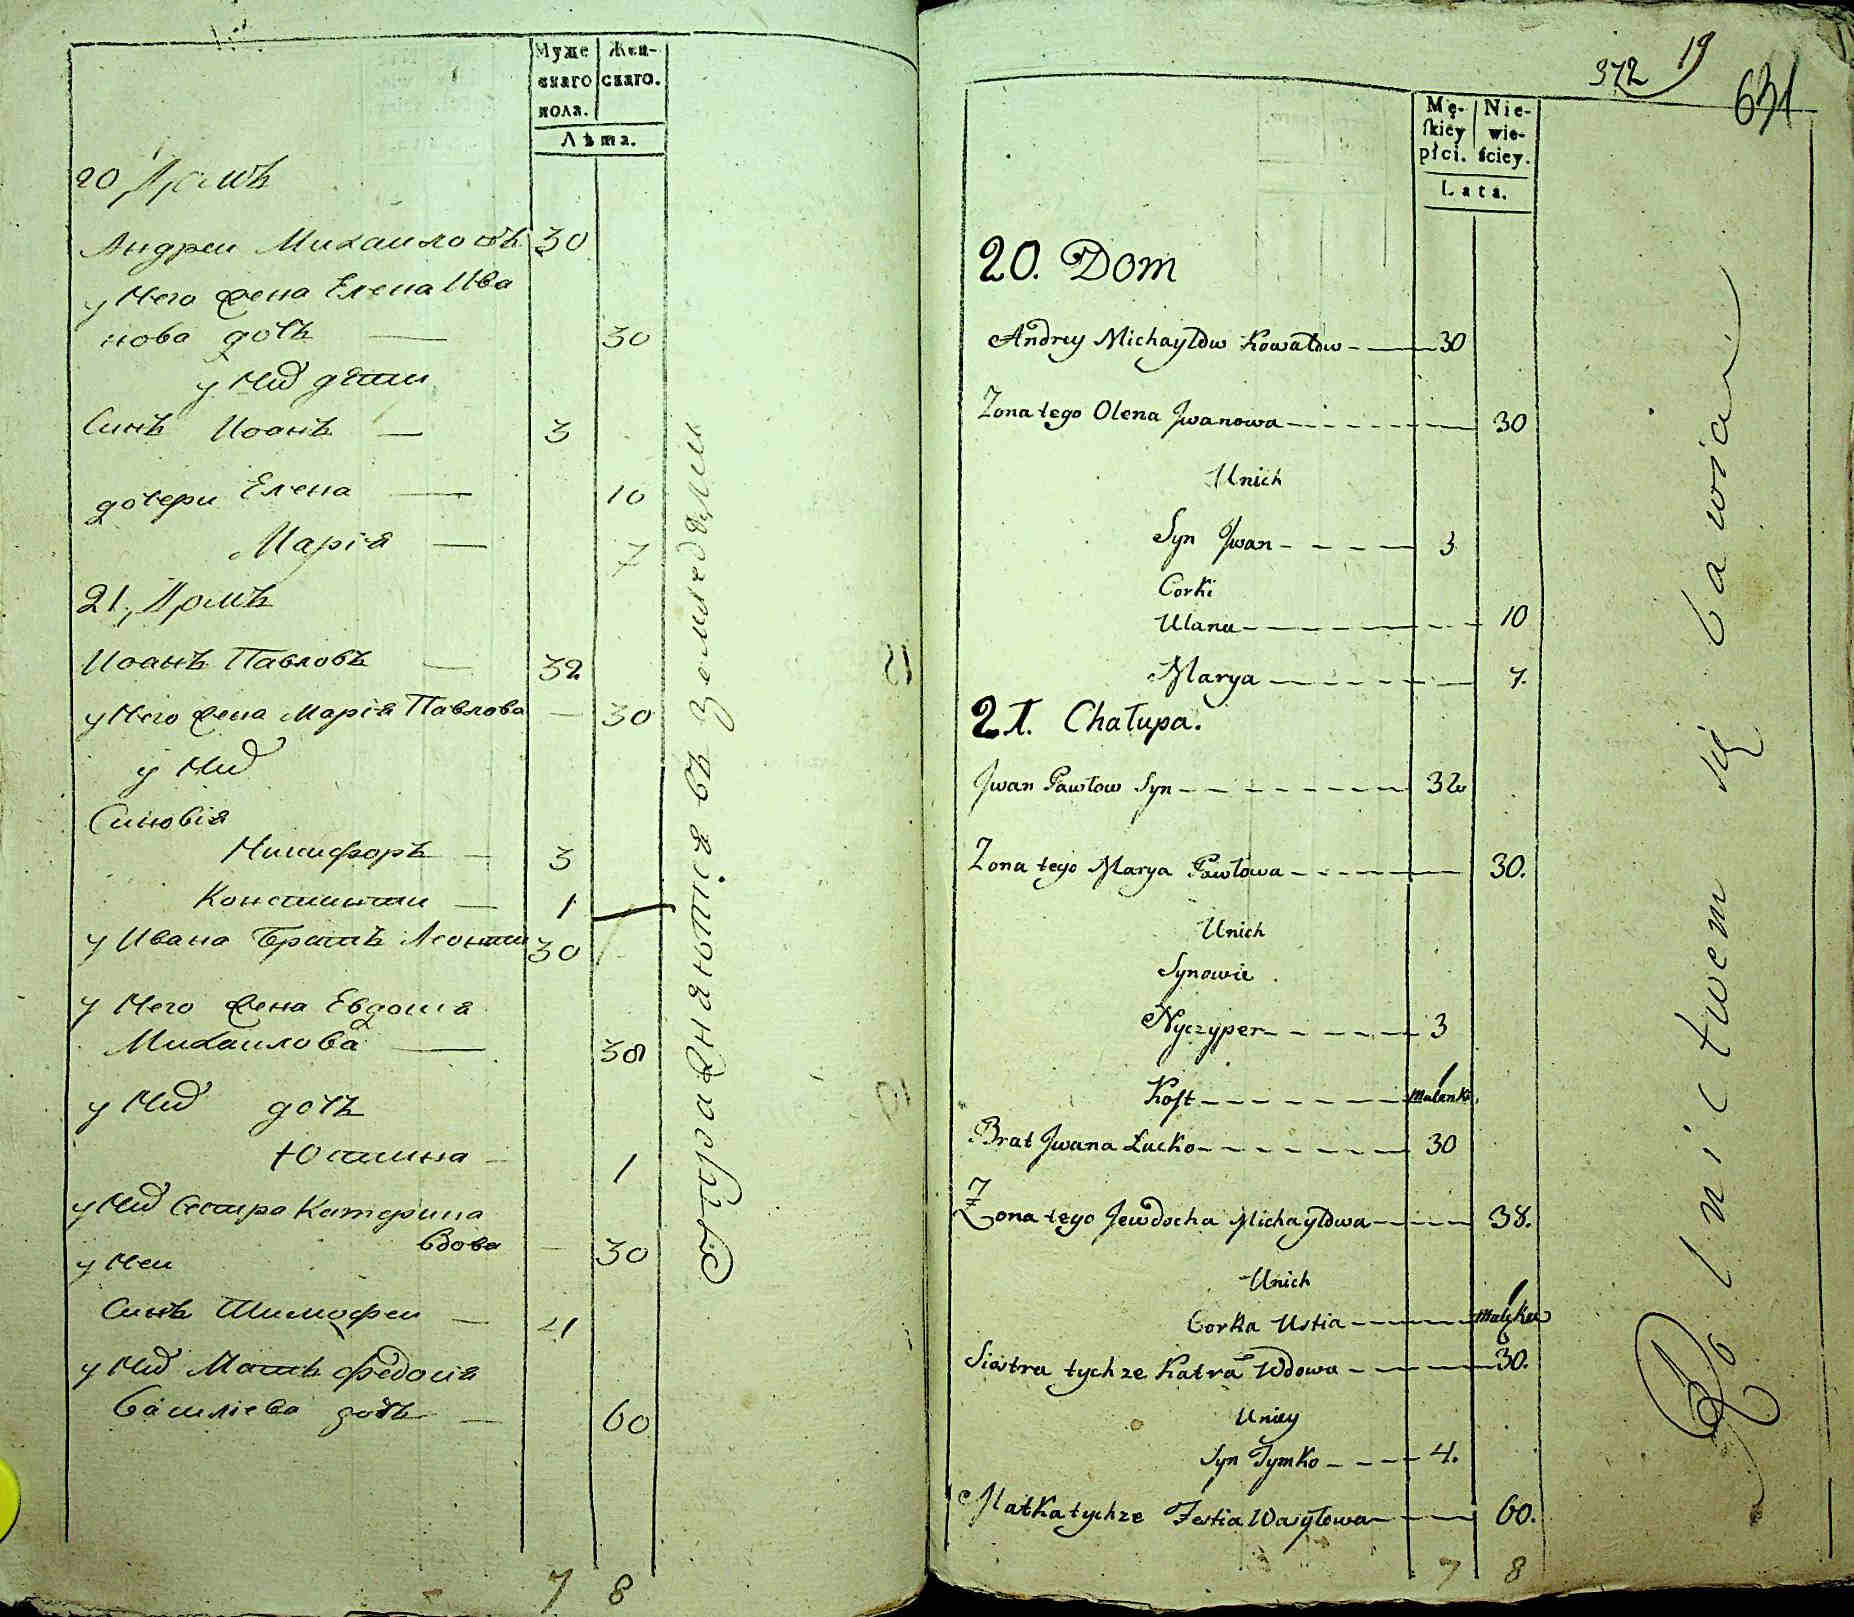 Муже
скаго
пола.
Жен-
скаго.
Лѣта.
20 Домъ
Андреи Михаиловъ 30
у Него жена Елена Ива
нова дочь — 30
у Них дѣти
Синъ Иоанъ — 3
дочери Елена — 10
Марія — 7
21, Домъ
Иоанъ Павловъ — 32
у Него жена Марія Павлова — 30
у Них
Синовія
Никифоръ — 3
Константи — 1
у Ивана Братъ Леонти 30
у Него жена Евдокия
Михаилова — 38
у Них дочь
Юстина — 1
у Них Сестра Катерина
вдова — 30
у Неи
Синъ Тимофеи — 4
у Них Мать Федосия
Василіева дочь — 60
7 8
Упражняются въ земледѣлии
372 19
631
Mę-
skiey
płci.
Nie-
wie-
ściey.
Lata.
20. Dom
Andrey Michayłow Kowalow - — 30
Zona tego Olena Jwanowa — 30
Unich
Syn Jwan - - - — 3
Corki
Ulana — 10
Marya — 7.
21. Chałupa.
Jwan Pawłow Syn - - - 32
Zona tego Marya Pawłowa - - - — 30.
Unich
Synowie
Nyczyper - - - 3
Kost - - - 1
Malenki
Brat Jwana Łucko - - - 30
Zona tego Jewdocha Michayłowa - - - 38.
Unich
Corka Ustia - - - 1
Siostra tychze Katra Wdowa - - - 30.
Uniey
Syn Tymko - - - 4.
Matka tychze Festia Wasyłowa - - - 60.
7 8
Rolnictwem się bawią